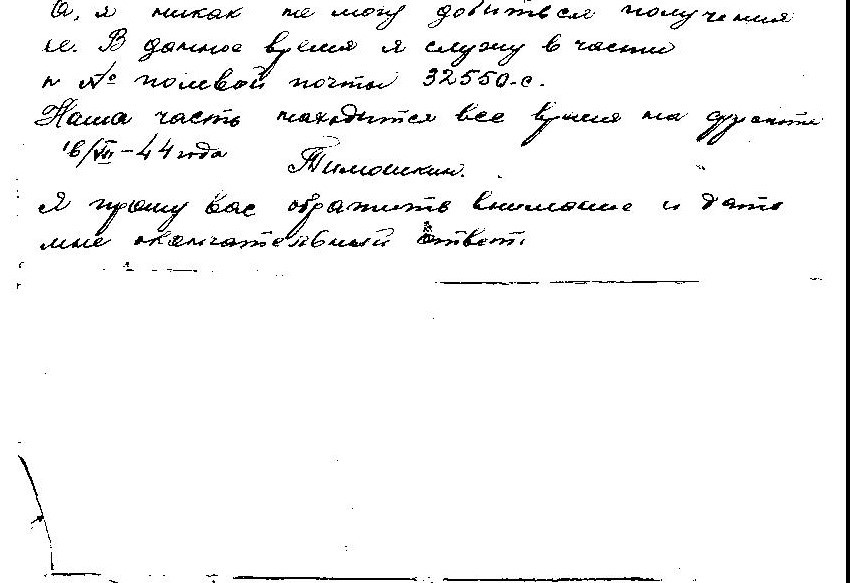 О, я никак не могу добиться получения
ее. В данное время я служу в части
п № полевой почты 32550-с.
Наша часть находится все время на фронте
16/VII-44 года Тимошкин.
Я прошу вас обратить внимание и дать
мне окончательный ответ.